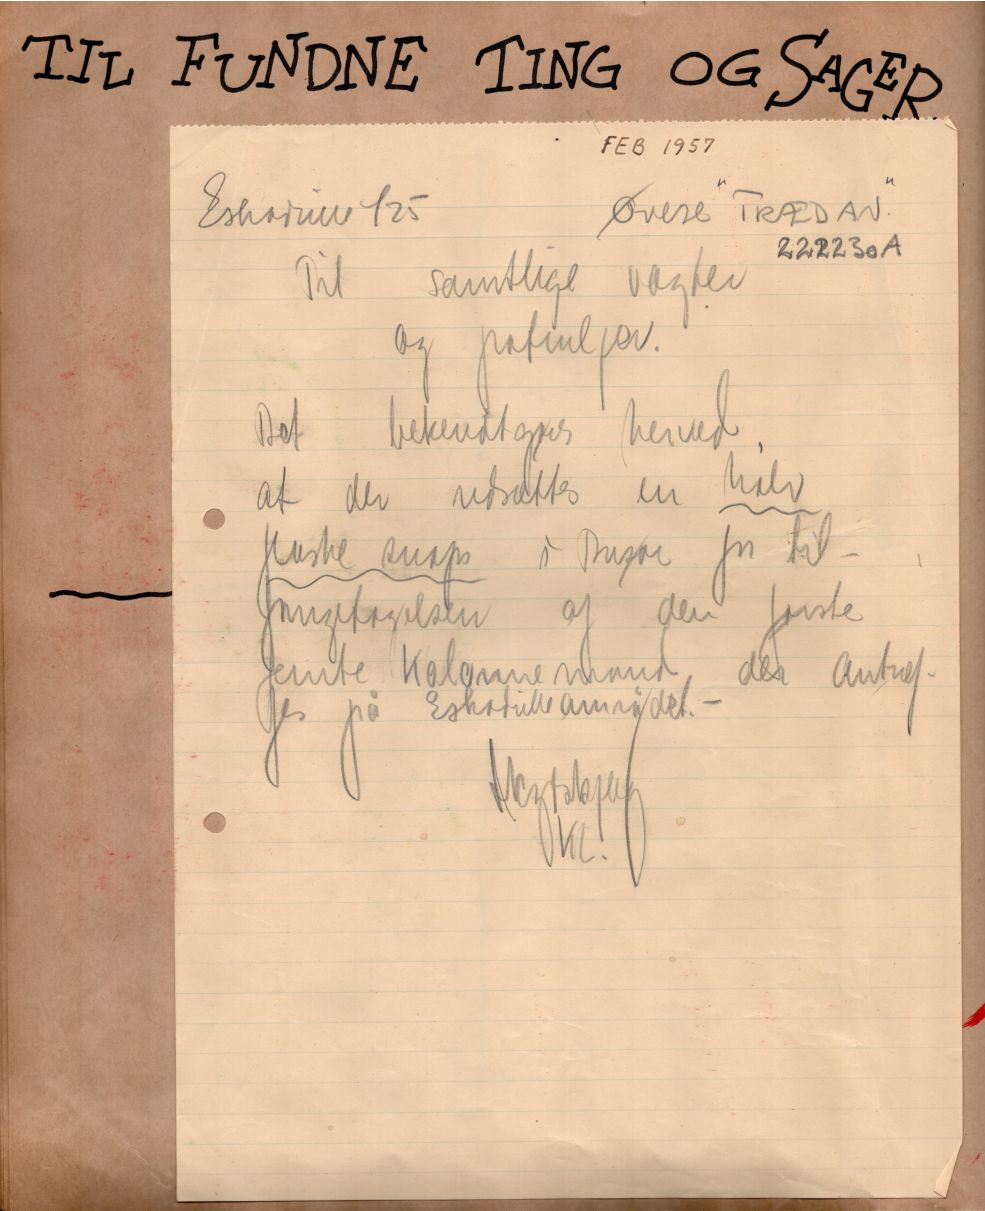 TIL FUNDNE TING OG SAGER
FEB 1957
Eskadrille 725
Øvelse "TRÆD AN"
222230A
Til samtlige vagter
og patruljer.
Det bekendtgøres herved,
at der udsættes en halv
flaske snaps i Dusør for til-
fangetagelsen af den første
femte Kolonnemand der antræf-
fes på Eskadrilleområdet.-
KL.